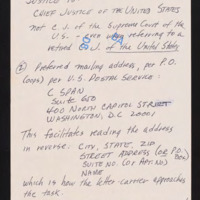 JUSTICE TO
CHIEF JUSTICE OF THE UNITED STATES
not C.J. of the Supreme Court of the
U.S. – even when referring to a
retired C.J. of the United States
② Preferred mailing address, per P.O.
(oops) per U.S. POSTAL SERVICE:
C-SPAN
SUITE 650
400 NORTH CAPITOL STREET
WASHINGTON, D.C. 20001
This facilitates reading the address
in reverse: CITY, STATE, ZIP
STREET ADDRESS (OR P.O. BOX)
SUITE NO. (OR APT. NO.)
NAME
which is how the letter-carrier approaches
the task.